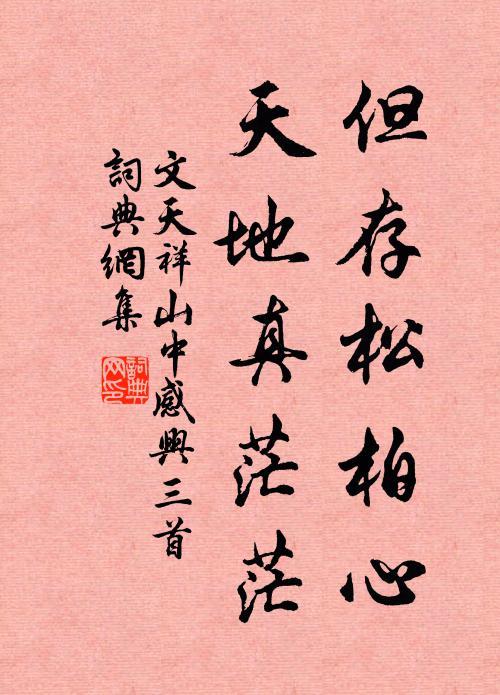 但存松柏心
天地真茫茫
文天祥山中感興三首
詞典網集
詞典網印